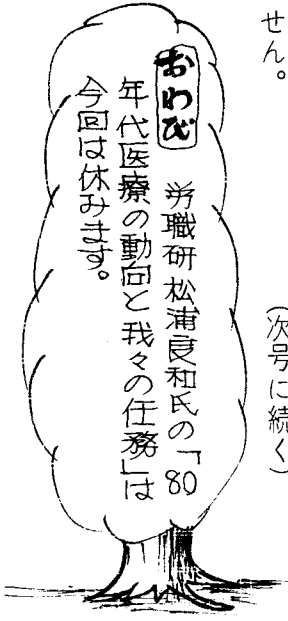 せん。
(次号に続く)
おわび 労職研松浦良和氏の「80
年代医療の動向と我々の任務」は
今回は休みます。